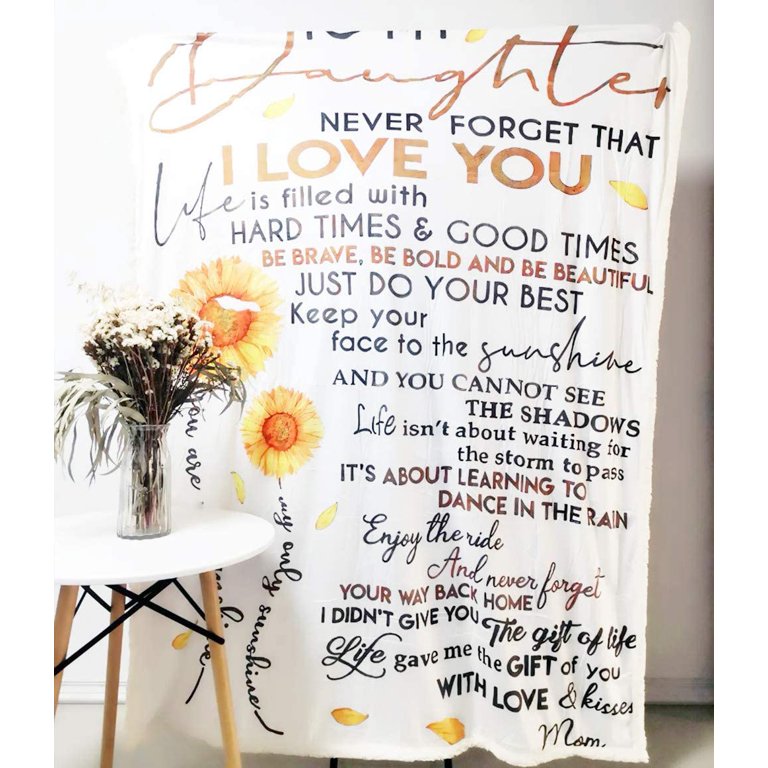 TO MY
Daughter
NEVER FORGET THAT
I LOVE YOU
Life is filled with
HARD TIMES & GOOD TIMES
BE BRAVE, BE BOLD AND BE BEAUTIFUL
JUST DO YOUR BEST
Keep your
face to the sunshine
AND YOU CANNOT SEE
THE SHADOWS
Life isn't about waiting for
the storm to pass
IT'S ABOUT LEARNING TO
DANCE IN THE RAIN
Enjoy the ride
And never forget
YOUR WAY BACK HOME
I DIDN'T GIVE YOU The gift of life
Life gave me the GIFT of YOU
WITH LOVE & kisses
Mom
you are
my only sunshine